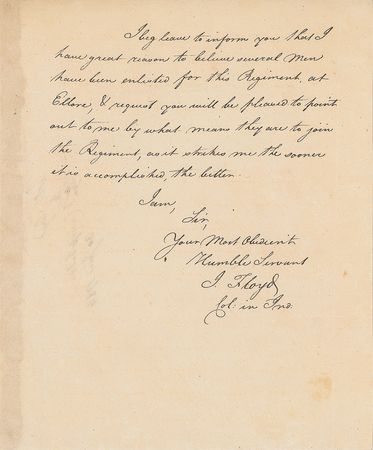 I beg leave to inform you that I
have great reason to believe several Men
have been enlisted for this Regiment, at
Ellore, & request you will be pleased to point
out to me by what means they are to join
the Regiment, as it strikes me the sooner
it is accomplished, the better.
I am,
Sir,
Your Most Obedient
Humble Servant
J. Floyd
Col: in Ind.